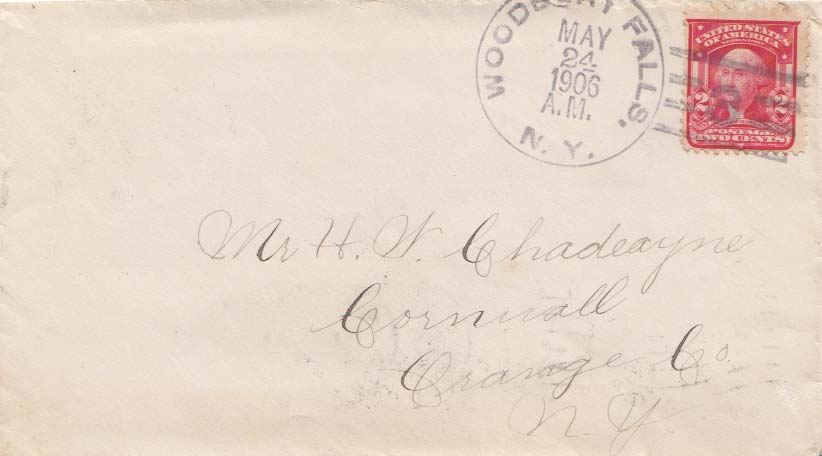 WOODBURY FALLS.
MAY
24
1906
A.M.
N.Y.
UNITED STATES
OF AMERICA
2 2
POSTAGE
TWO CENTS
Mr H. W. Chadeayne
Cornwall
Orange Co.
N.Y.